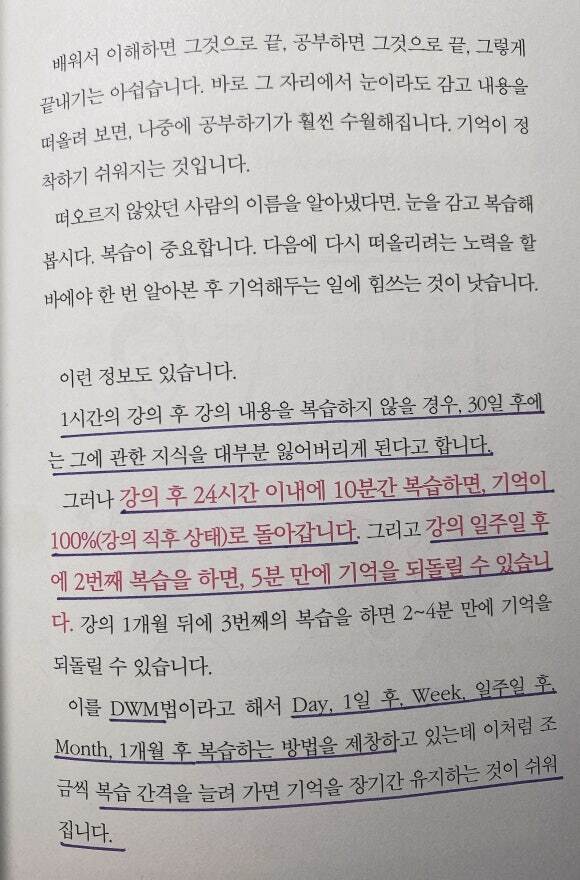 배워서 이해하면 그것으로 끝, 공부하면 그것으로 끝, 그렇게
끝내기는 아쉽습니다. 바로 그 자리에서 눈이라도 감고 내용을
떠올려 보면, 나중에 공부하기가 훨씬 수월해집니다. 기억이 정
착하기 쉬워지는 것입니다.
떠오르지 않았던 사람의 이름을 알아냈다면. 눈을 감고 복습해
봅시다. 복습이 중요합니다. 다음에 다시 떠올리려는 노력을 할
바에야 한 번 알아본 후 기억해두는 일에 힘쓰는 것이 낫습니다.
이런 정보도 있습니다.
1시간의 강의 후 강의 내용을 복습하지 않을 경우, 30일 후에
는 그에 관한 지식을 대부분 잃어버리게 된다고 합니다.
그러나 강의 후 24시간 이내에 10분간 복습하면, 기억이
100%(강의 직후 상태)로 돌아갑니다. 그리고 강의 일주일 후
에 2번째 복습을 하면, 5분 만에 기억을 되돌릴 수 있습니
다. 강의 1개월 뒤에 3번째의 복습을 하면 2~4분 만에 기억을
되돌릴 수 있습니다.
이를 DWM법이라고 해서 Day, 1일 후, Week, 일주일 후,
Month, 1개월 후 복습하는 방법을 제창하고 있는데 이처럼 조
금씩 복습 간격을 늘려 가면 기억을 장기간 유지하는 것이 쉬워
집니다.